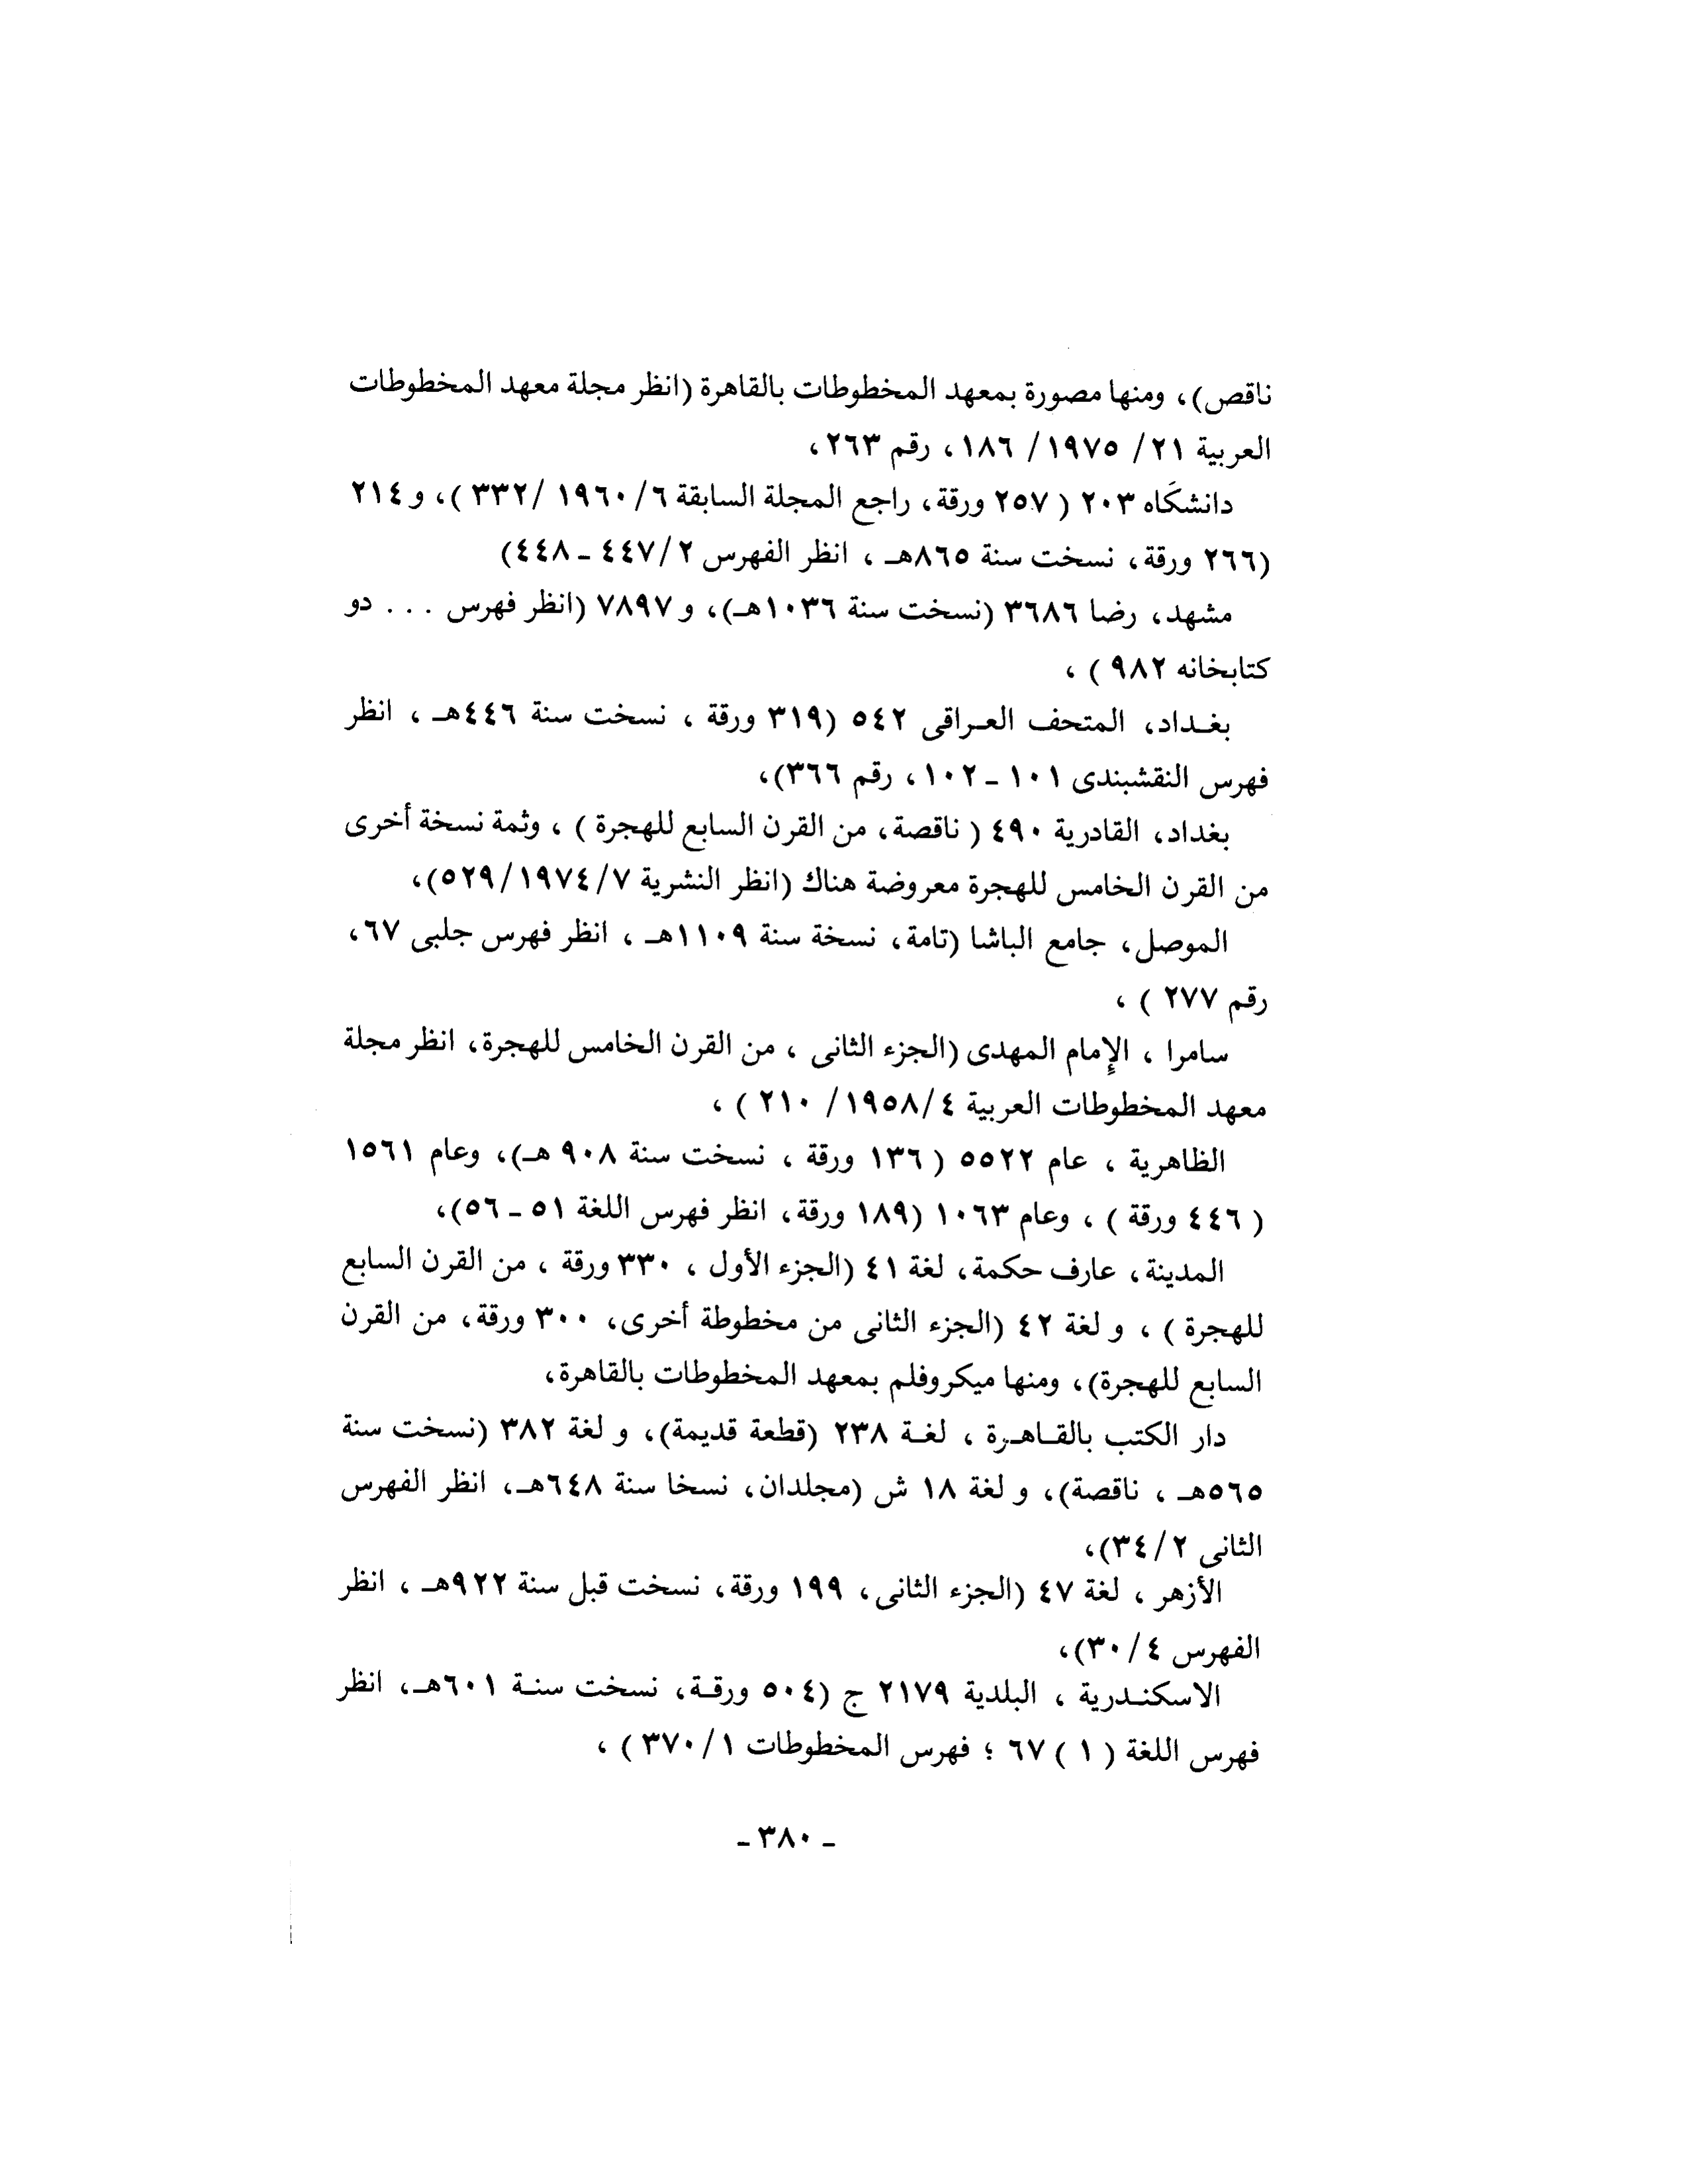 ناقص)، ومنها مصورة بمعهد المخطوطات بالقاهرة (انظر مجلة معهد المخطوطات
العربية ٢١/ ١٩٧٥/ ١٨٦، رقم ٢٦٣،
دانشگاه ٢٠٣ ( ٢٥٧ ورقة، راجع المجلة السابقة ٦/ ١٩٦٠/ ٣٣٢ )، و ٢١٤
(٢٦٦ ورقة، نسخت سنة ٨٦٥هـ ، انظر الفهرس ٢/ ٤٤٧ ـ ٤٤٨)
مشهد، رضا ٣٦٨٦ (نسخت سنة ١٠٣٦هـ)، و ٧٨٩٧ (انظر فهرس . . . دو
كتابخانه ٩٨٢ ) ،
بغـداد، المتحف العـراقى ٥٤٢ (٣١٩ ورقة ، نسخت سنة ٤٤٦هـ ، انظر
فهرس النقشبندى ١٠١ ـ ١٠٢ ، رقم ٣٦٦)،
بغداد، القادرية ٤٩٠ ( ناقصة، من القرن السابع للهجرة ) ، وثمة نسخة أخرى
من القرن الخامس للهجرة معروضة هناك (انظر النشرية ٧/ ١٩٧٤/ ٥٢٩)،
الموصل، جامع الباشا (تامة، نسخة سنة ١١٠٩هـ ، انظر فهرس جلبى ٦٧،
رقم ٢٧٧ ) ،
سامرا ، الإمام المهدى (الجزء الثانى ، من القرن الخامس للهجرة، انظر مجلة
معهد المخطوطات العربية ٤/ ١٩٥٨/ ٢١٠ ) ،
الظاهرية ، عام ٥٥٢٢ ( ١٣٦ ورقة ، نسخت سنة ٩٠٨ هـ)، وعام ١٥٦١
( ٤٤٦ ورقة ) ، وعام ١٠٦٣ (١٨٩ ورقة، انظر فهرس اللغة ٥١ ـ ٥٦)،
المدينة، عارف حكمة، لغة ٤١ (الجزء الأول ، ٣٣٠ ورقة ، من القرن السابع
للهجرة ) ، و لغة ٤٢ (الجزء الثانى من مخطوطة أخرى، ٣٠٠ ورقة، من القرن
السابع للهجرة)، ومنها ميكروفلم بمعهد المخطوطات بالقاهرة،
دار الكتب بالقـاهـرة ، لغـة ٢٣٨ (قطعة قديمة)، و لغة ٣٨٢ (نسخت سنة
٥٦٥هـ ، ناقصة)، و لغة ١٨ ش (مجلدان، نسخا سنة ٦٤٨هـ، انظر الفهرس
الثانى ٢/ ٣٤)،
الأزهر ، لغة ٤٧ (الجزء الثانى، ١٩٩ ورقة، نسخت قبل سنة ٩٢٢هـ ، انظر
الفهرس ٤/ ٣٠)،
الاسكنـدرية ، البلدية ٢١٧٩ ج (٥٠٤ ورقـة، نسخت سنـة ٦٠١هـ، انظر
فهرس اللغة ( ١ ) ٦٧ ؛ فهرس المخطوطات ١/ ٣٧٠ ) ،
ـ ٣٨٠ ـ